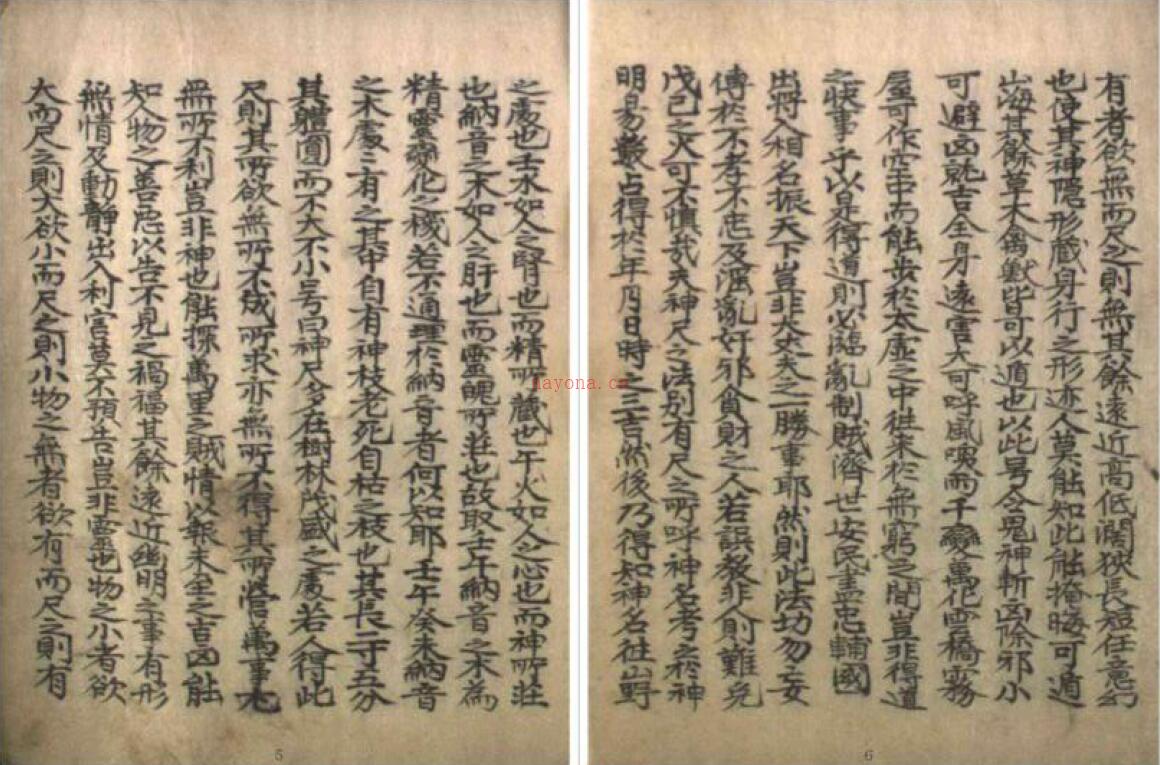 之處也壬水如人之腎也而精所藏也午火如人之心也而神所莊
也納音之木如人之肝也而靈魄所莊也故取壬午納音之木為
精靈變化之機若不通理於納音者何以知耶壬午癸未納音
之木處〻有之其中自有神枝老死自枯之枝也其長二寸五分
其體圓而不大不小号曰神尺多在樹林茂盛之處若人得此
尺則其所欲無所不成所求亦無所不得其所營萬事尤
無所不利豈非神也能探萬里之賊情以報未至之吉凶能
知人物之善惡以告不見之禍福其餘遠近幽明之事有形
無情及動靜出入利害莫不預告豈非靈也物之小者欲
大而尺之則大欲小而尺之則小物之無者欲有而尺之則有
5
有者欲無而尺之則無其餘遠近高低濶狹長短任意幻
也使其神隱形藏身行之形迹人莫能知此能掩晦可遁
山海其餘草木禽獸皆可以遁也以此号令鬼神斬凶除邪小
可避凶就吉全身遠害大可呼風喚雨千變萬化雲橋霧
屋可作空中而能步於太虛之中徃来於無窮之間豈非得道
之快事乎以是得道則必臨亂制賊濟世安民盡忠輔國
出將入相名振天下豈非大丈夫之一勝事耶然則此法切勿妄
傳於不孝不忠及淫亂奸邪貪財之人若誤發非人則難免
戊己之灾可不慎哉夫神尺之法別有尺之所呼神名考之於神
明易數占得於年月日時之三吉然後乃得知神名徃山野
6